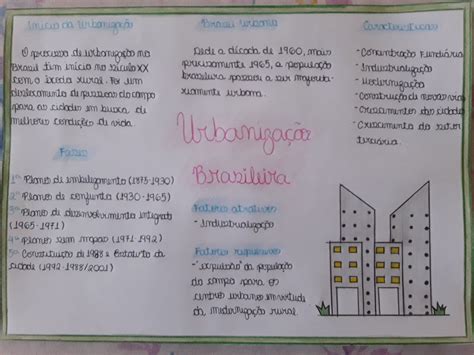 Início da Urbanização
O processo de urbanização no
Brasil tem início no século XX
com o êxodo rural. Foi um
deslocamento de pessoas do campo
para as cidades em busca, de
melhores condições de vida.
Brasil Urbano
Desde a década de 1960, mais
precisamente 1965, a população
brasileira passou a ser majorita-
riamente urbana.
Características
- Concentração Fundiária
- Industrialização
- Modernização
- Construção de novas vias
- Crescimentos das cidades
- Crescimento do setor
terciário.
Urbanização
Brasileira
Fases
1º Planos de embelezamento (1875-1930)
2º Planos de conjunto (1930-1965)
3º Planos de desenvolvimento integrado
(1965-1971)
4º Planos sem mapas (1971-1992)
5º Constituição de 1988 e Estatuto da
cidade (1992-1988/2001)
Fatores atrativos
- Industrialização
Fatores repulsivos
- "expulsão" da população
do campo para os
centros urbanos em virtude
da modernização rural